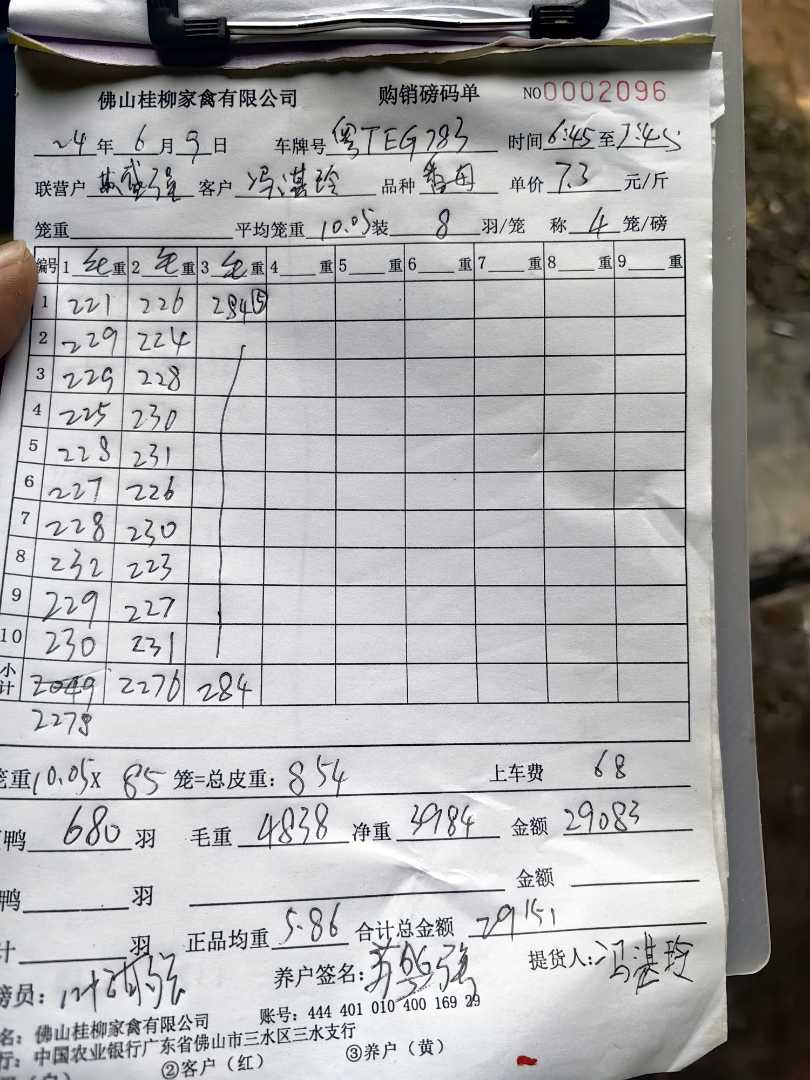 佛山桂柳家禽有限公司 购销磅码单 NO0002096
24年6月9日 车牌号 粤TEG783 时间6:45至7:45
联营户 强 客户 冯湛玲 品种 单价 7.3 元/斤
笼重 平均笼重 10.05 装 8 羽/笼 称 4 笼/磅
编号 1 毛重 2 毛重 3 毛重 4 重 5 重 6 重 7 重 8 重 9 重
1 221 226 284⑤
2 229 224
3 229 228
4 225 230
5 228 231
6 227 226
7 228 230
8 232 223
9 229 227
10 230 231
小计 2049 2276 284
2278
笼重10.05X 85 笼=总皮重：854 上车费 68
鸭 680 羽 毛重 4838 净重 3984 金额 29083
鸭 羽 金额
计 羽 正品均重 5.86 合计总金额 29151
磅员： 养户签名： 强 提货人：冯湛玲
名：佛山桂柳家禽有限公司 账号：444 401 010 400 169 29
行：中国农业银行广东省佛山市三水区三水支行
②客户（红） ③养户（黄）